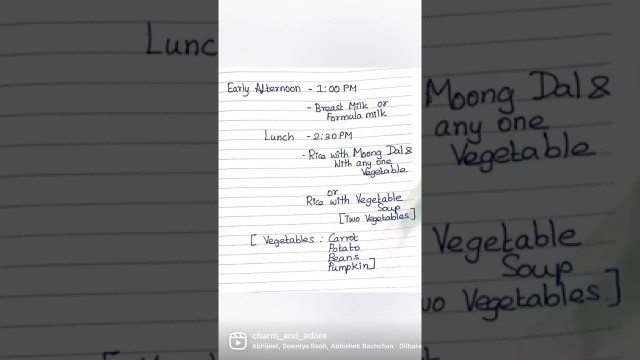 Early Afternoon - 1:00 PM
- Breast Milk or
Formula milk
Lunch - 2:30 PM
- Rice with Moong Dal &
With any one
Vegetable
or
Rice with Vegetable
Soup
[Two Vegetables]
[ Vegetables : Carrot
Potato
Beans
Pumpkin]
charm_and_adore
Abhijeet, Sowmya Raoh, Abhishek Bachchan · Dilbara
Lunch
Moong Dal &
any one
Vegetable
Vegetable
Soup
wo Vegetables ]